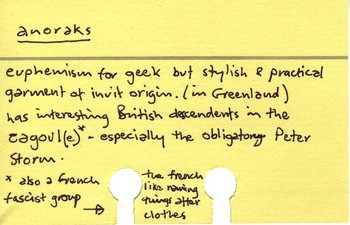 anoraks
euphemism for geek but stylish & practical
garment of inuit origin. (in Greenland)
has interesting British descendents in the
cagoul(e)* - especially the obligatory Peter
Storm.
* also a french
fascist group →
the french
like naming
things after
clothes